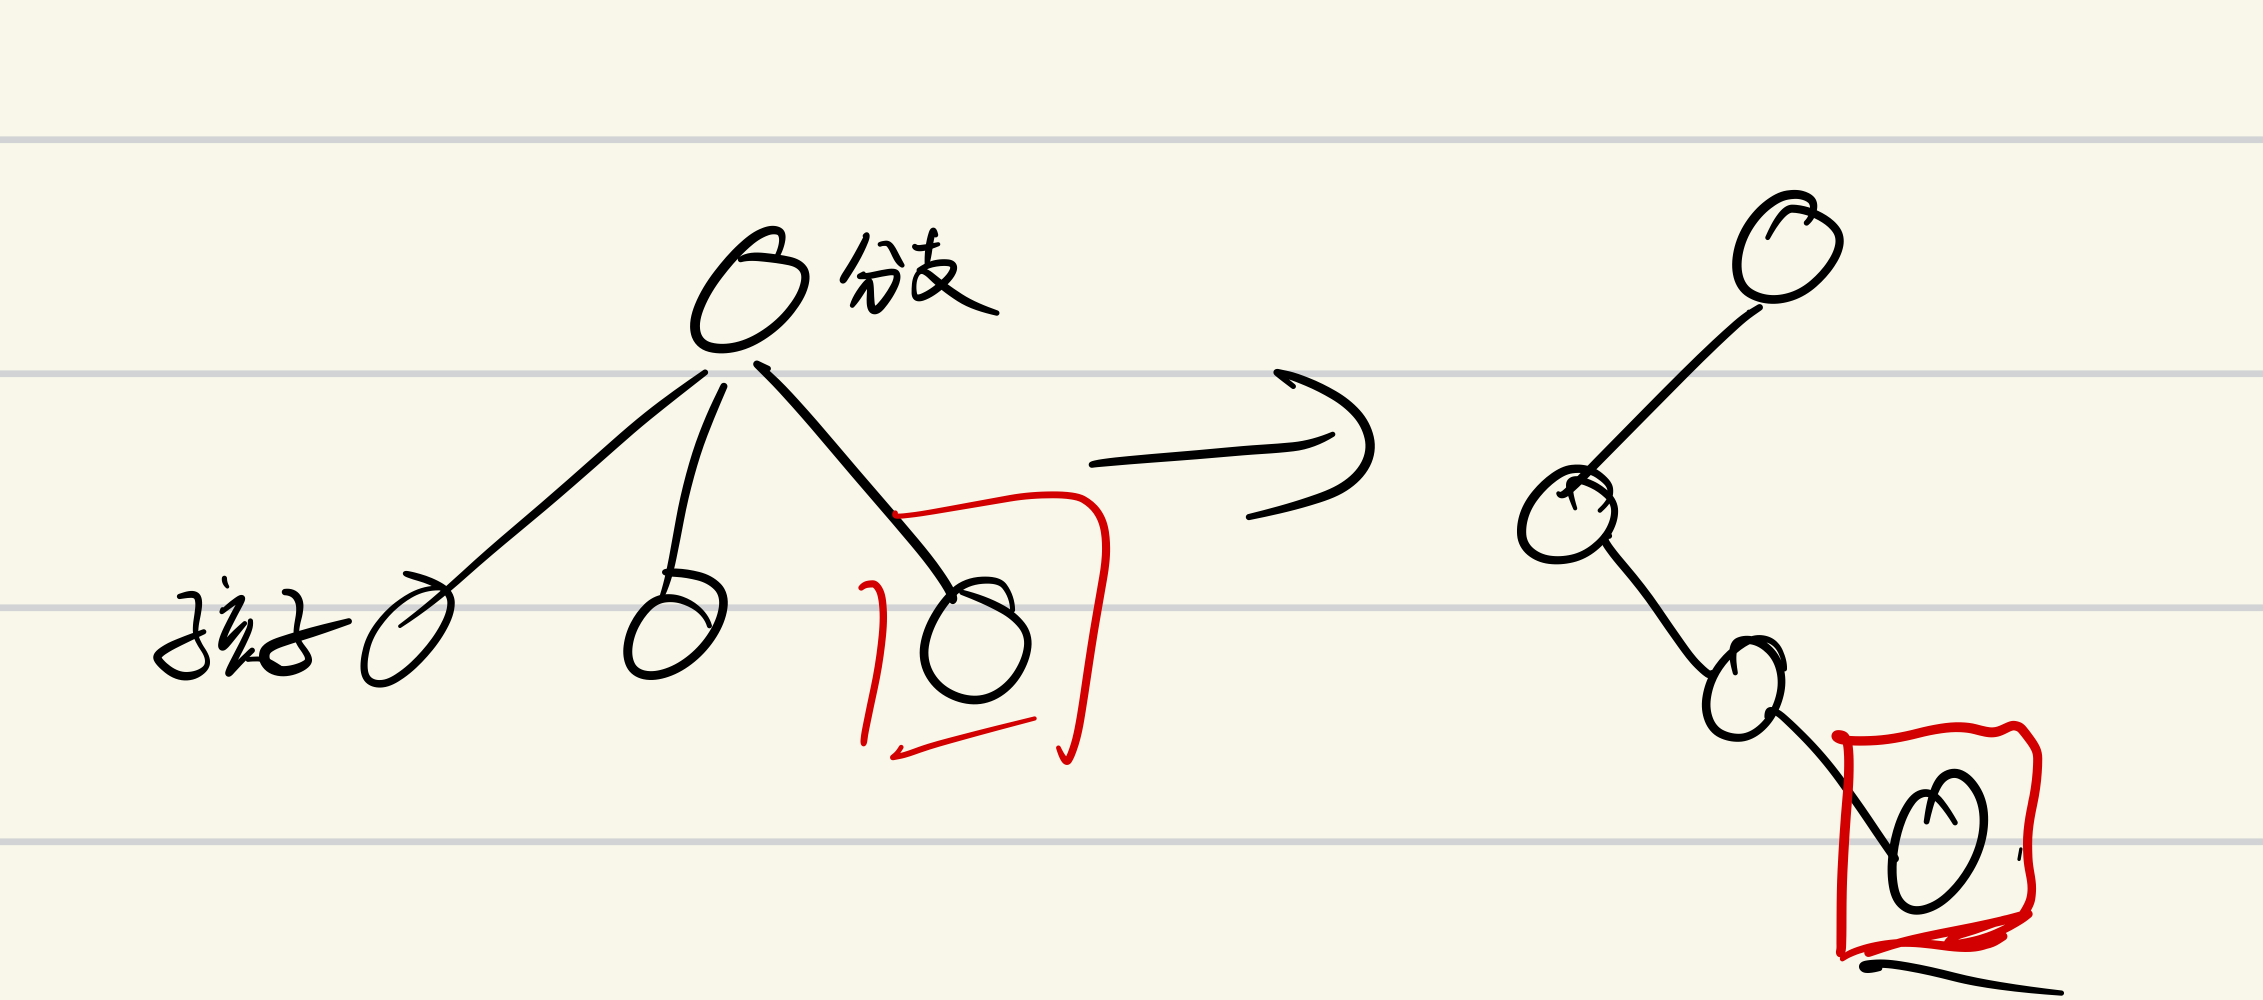 分支
孩子